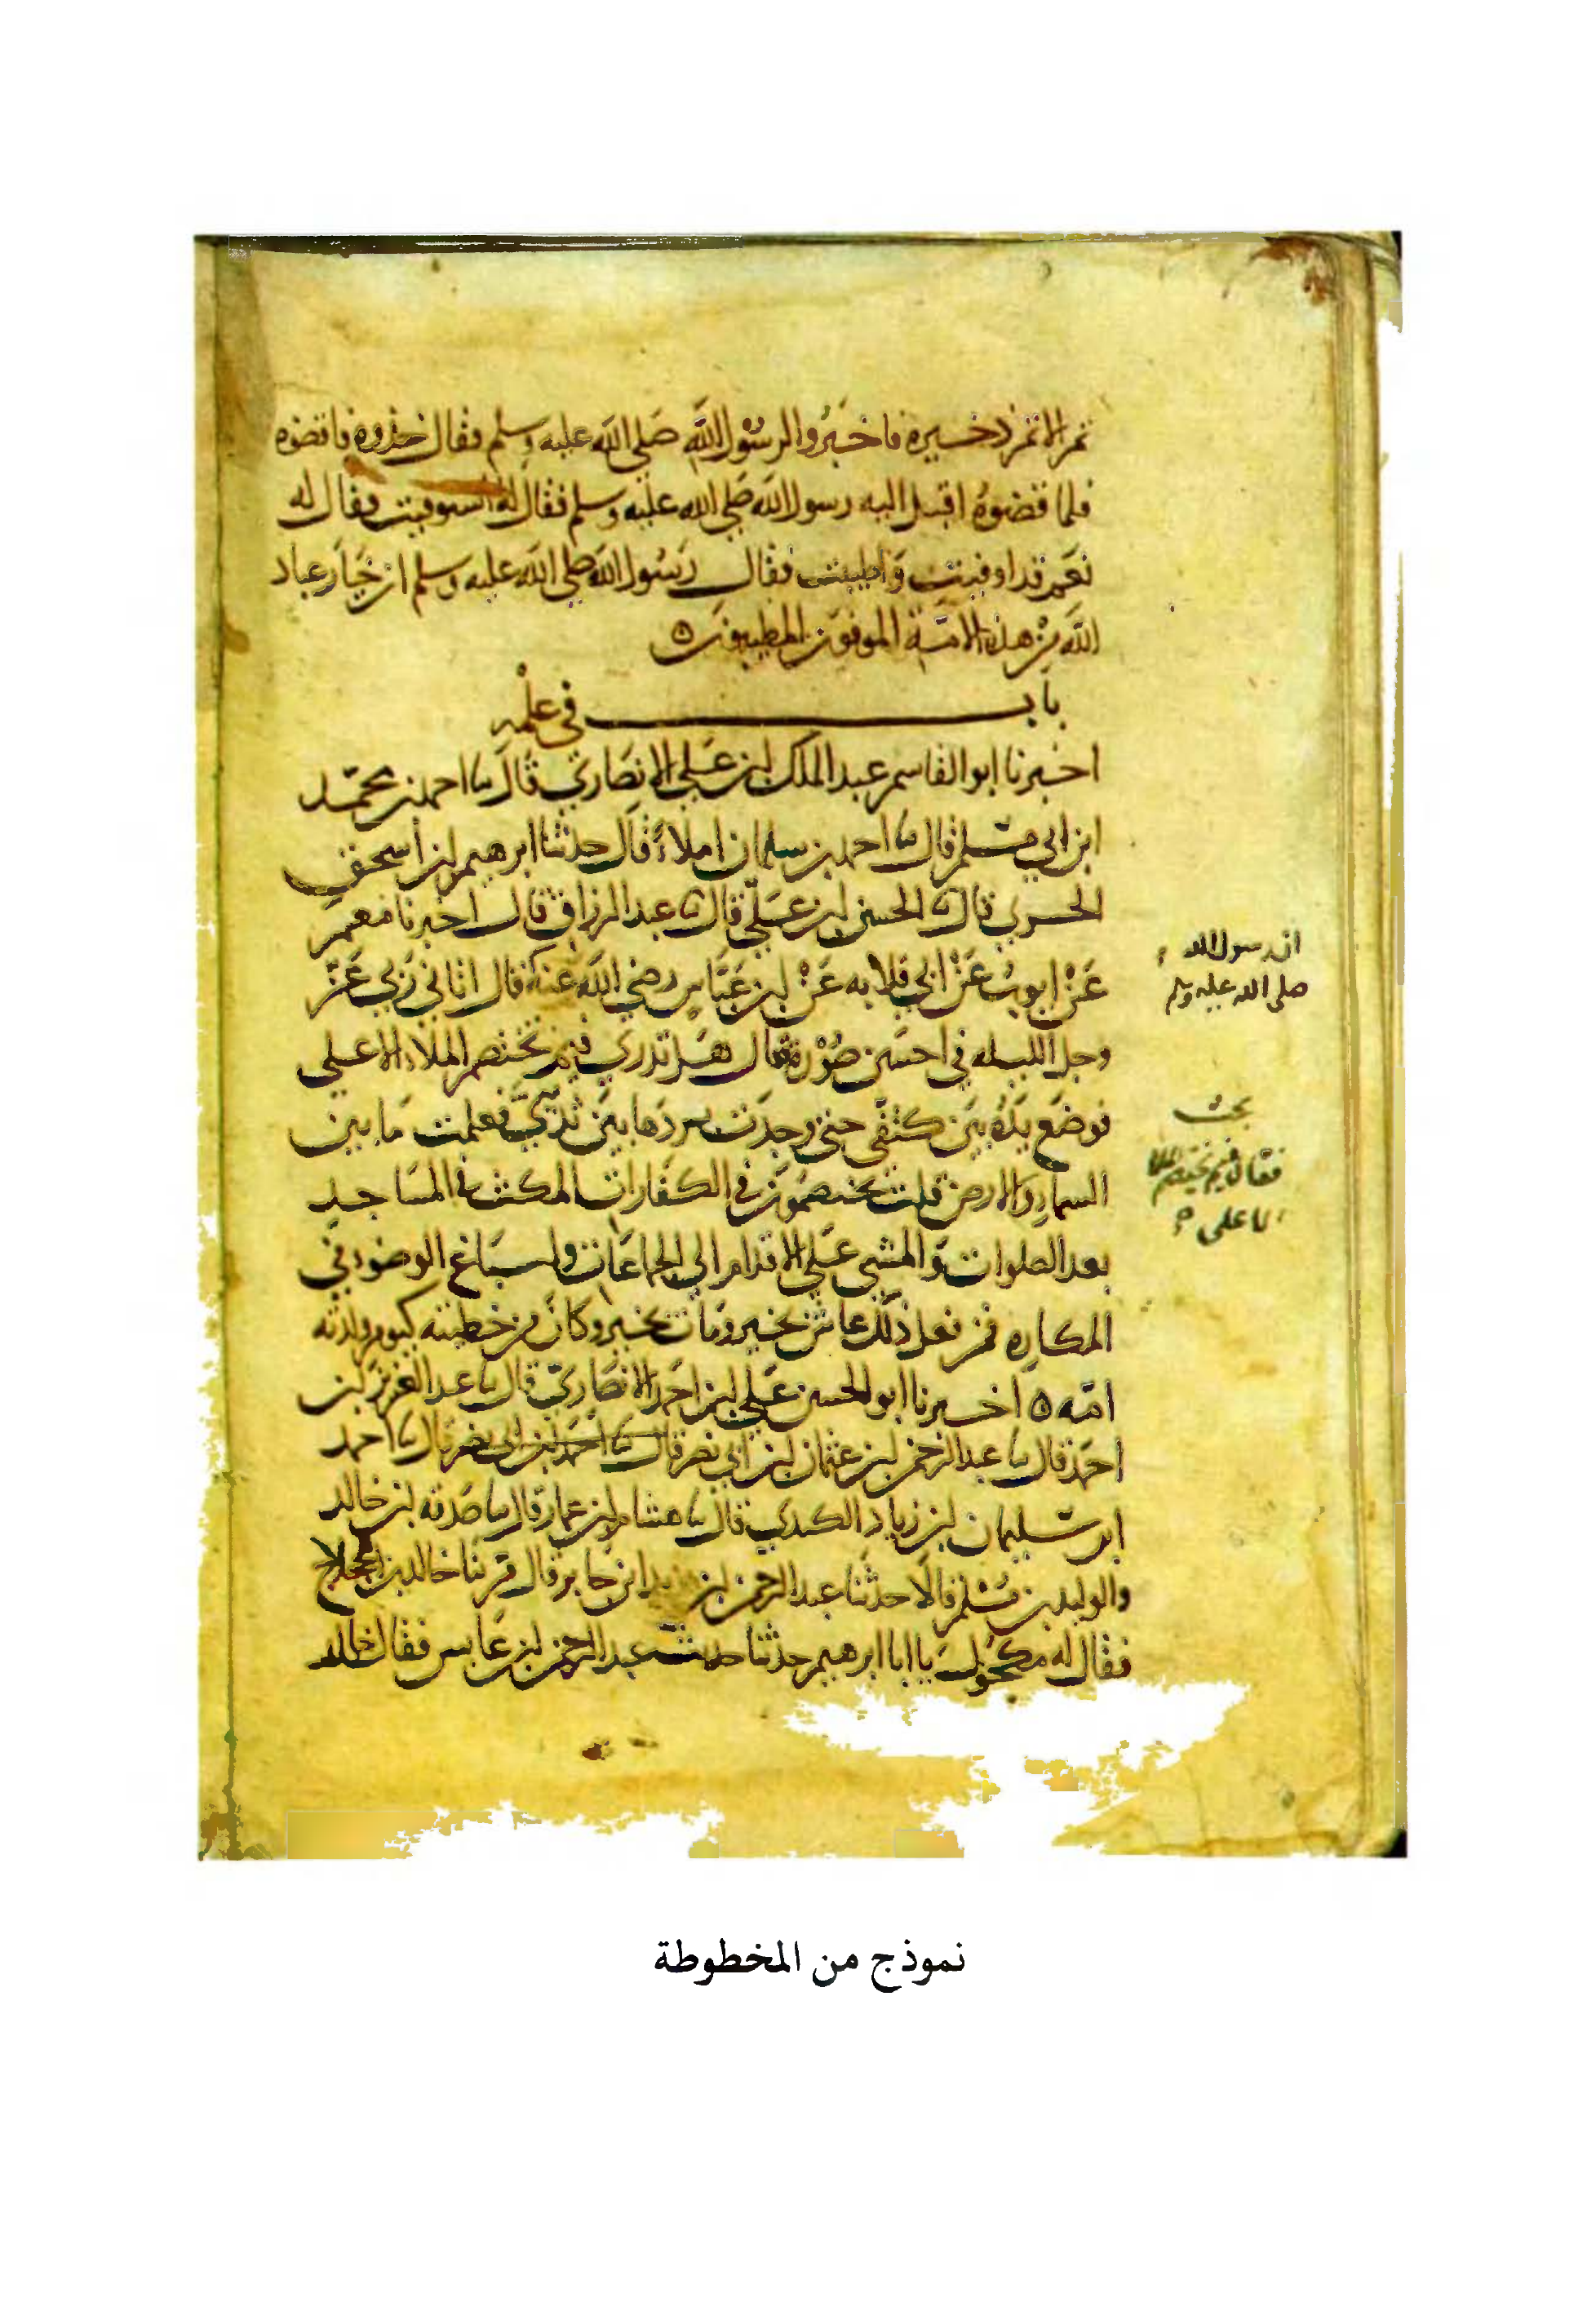 تمرا الا تمر ذخيره فاخبروا لرسول الله صلى الله عليه وسلم فقال خذوه فاقضوه
فلما قضوه اقبل اليه رسول الله صلى الله عليه وسلم فقال له استوفيت فقال له
نعم قد اوفيت واطيبت فقال رسول الله صلى الله عليه وسلم ان خيار عباد
الله من هذه الامة الموفون المطيبون ه
باب في علمه
اخبرنا ابو القاسم عبد الملك بن علي الانصاري قال نا احمد بن محمد
ابن ابي مسلم قال نا احمد بن سلمان املاءً قال حدثنا ابرهيم بن اسحق
الحربي قال نا الحسن بن علي قال نا عبد الرزاق قال اخبرنا معمر
عن ايوب عن ابي قلابه عن ابن عباس رضي الله عنه قال اتاني ربي عز
ان رسول الله
صلى الله عليه وسلم
وجل الليله في احسن صورة فقال هل تدري فيم يختصم الملاء الاعلى
فوضع يده بين كتفي حتى وجدت بردها بين ثديي فعلمت ما بين
فقال فيم يختصم الملا
الاعلى
السماء والارض قلت يختصمون في الكفارات المكث في المساجد
بعد الصلوات والمشي على الاقدام الى الجماعات واسباغ الوضوء في
المكاره فمن فعل ذلك عاش بخير ومات بخير وكان من خطيئته كيوم ولدته
امه ه اخبرنا ابو الحسن علي بن احمد الانصاري قال نا عبد العزيز بن
احمد قال نا عبد الرحمن بن عثمان بن ابي نصر قال نا احمد بن ابي نصر قال نا احمد
ابن سليمان بن زياد الكندي قال نا هشام بن عمار قال نا صدقه بن خالد
والوليد بن مسلم قالا حدثنا عبد الرحمن بن يزيد ابن جابر قال مر بنا خالد بن اللجلاج
فقال له مكحول يا ابا ابرهيم حدثنا حديث عبد الرحمن بن عايس فقال خالد
نموذج من المخطوطة